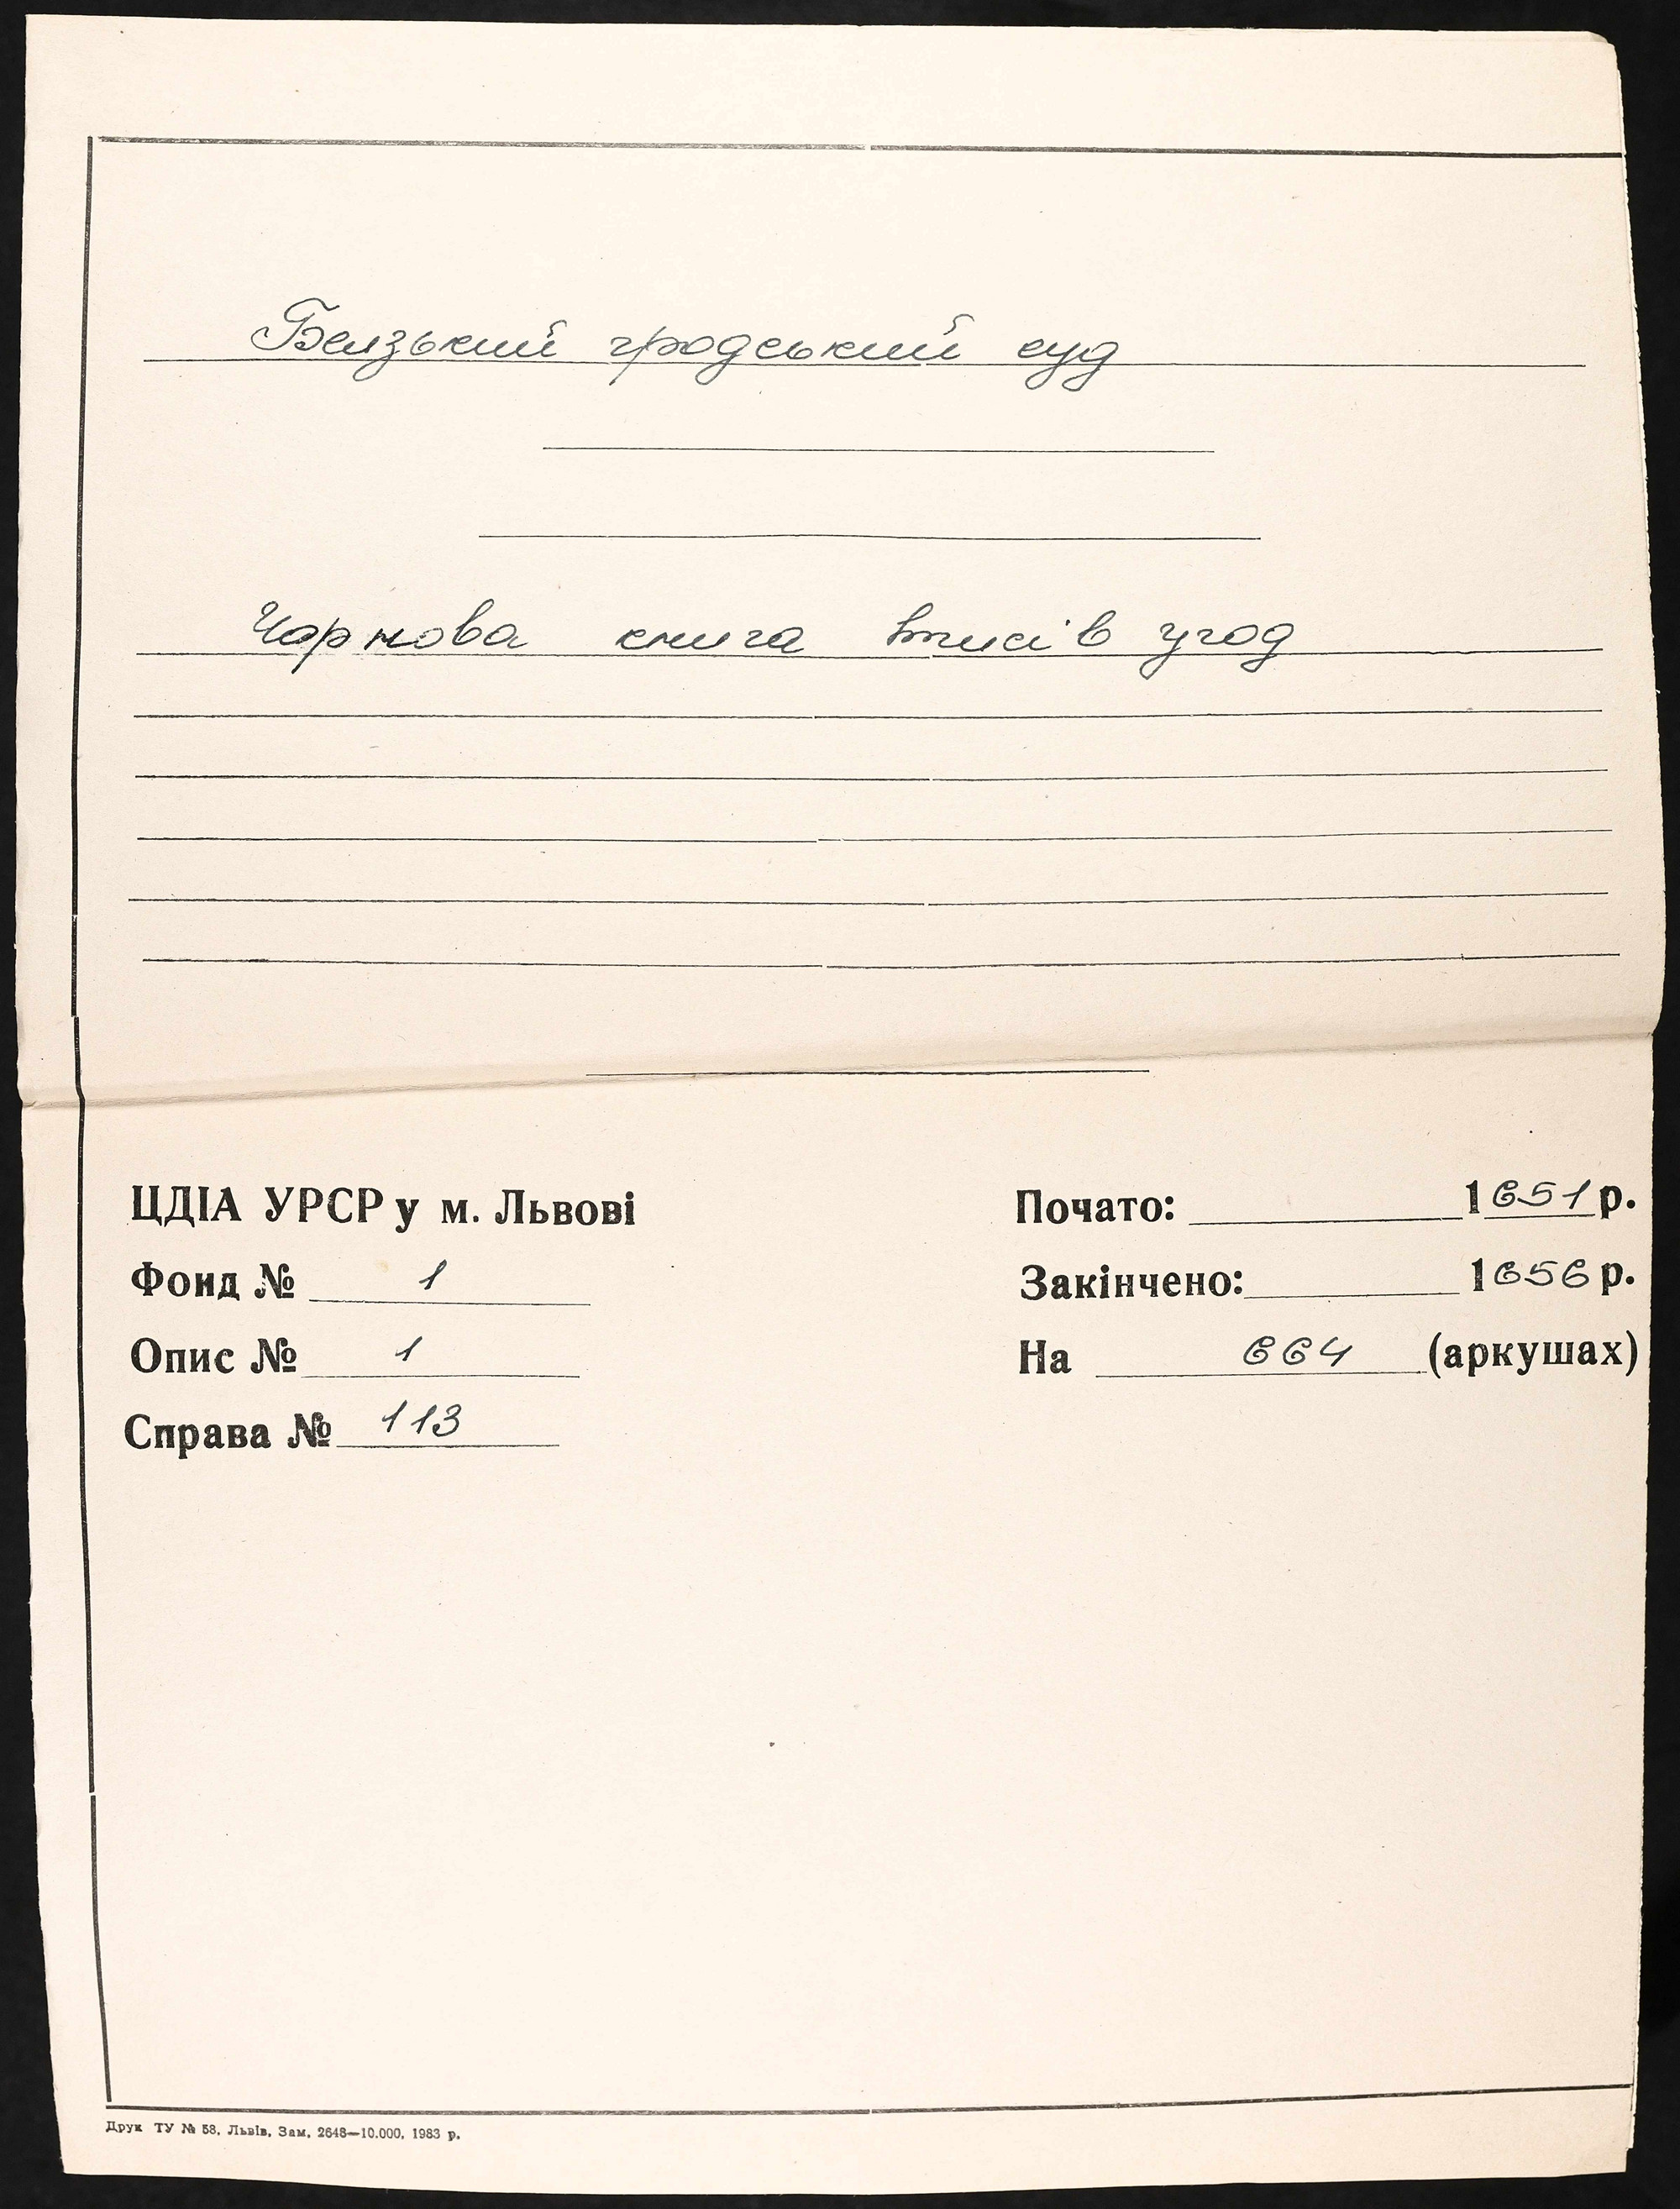 Белзький гродський суд
Чорнова книга вписів угод
ЦДІА УРСР у м. Львові
Фонд № 1
Опис № 1
Справа № 113
Почато: 1651 р.
Закінчено: 1656 р.
На 664 (аркушах)
Друк ТУ № 58, Львів, Зам. 2648—10.000, 1983 р.